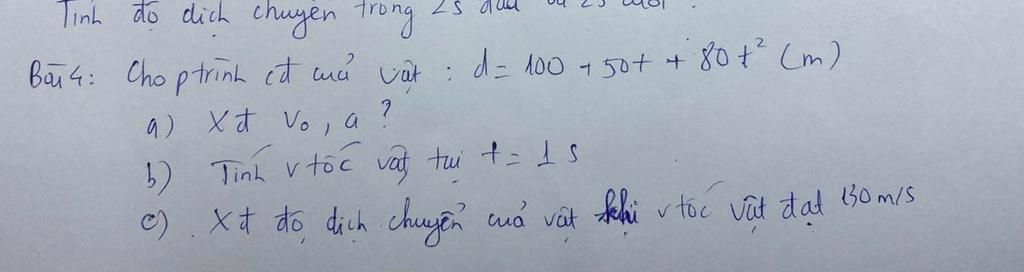 Tính độ dịch chuyển trong 2s đầu và 2s cuối.
Bài 4: Cho ptrình cđ cuả vật : d = 100 + 50t + 80t² (m)
a) Xđ v₀, a ?
b) Tính vtốc vật tại t = 1 s
c) Xđ độ dịch chuyển cuả vật khi vtốc vật đạt 130 m/s